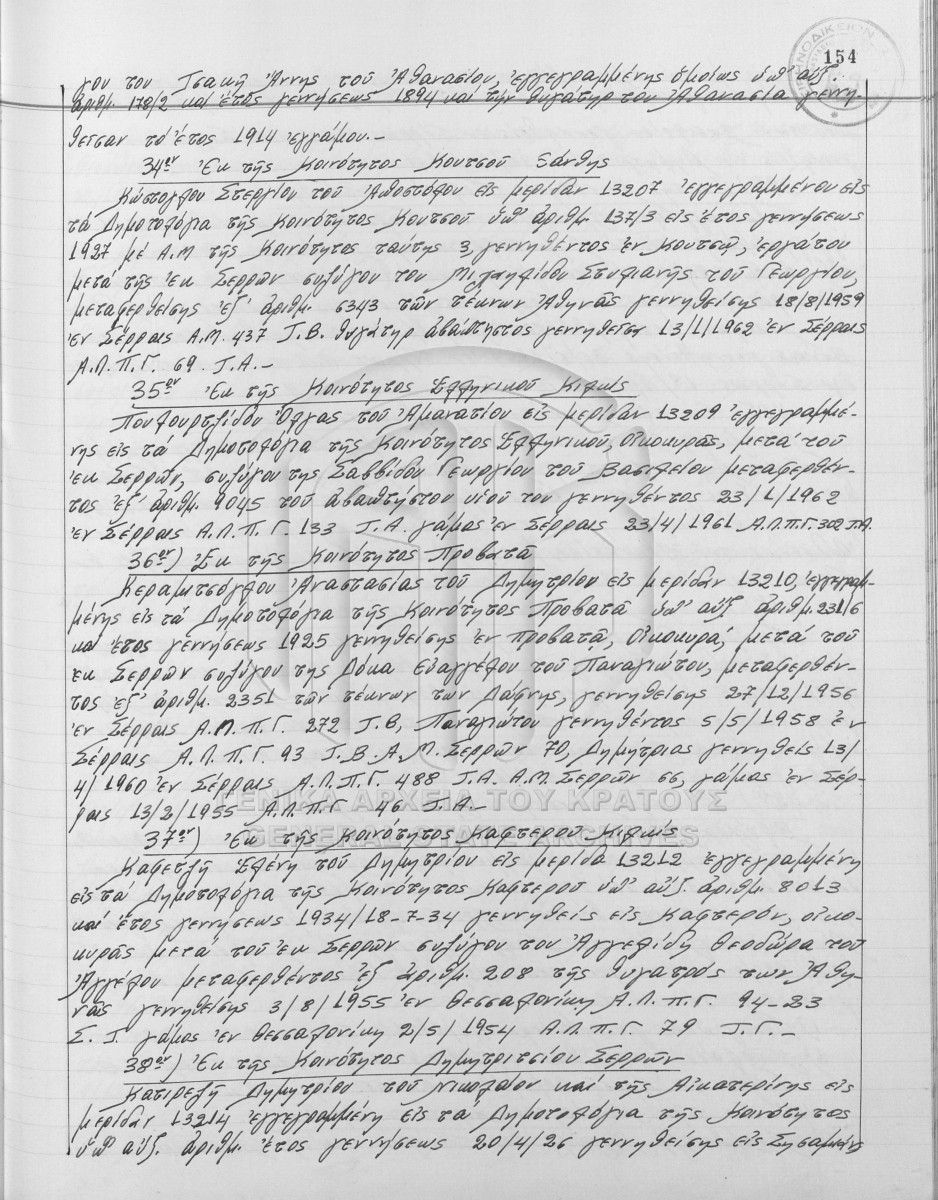 154
γου του Τσακῆ Ἄννης τοῦ Ἀθανασίου, ἐγγεγραμμένης ὁμοίως ὑπ' αὔξ.
ἀριθμ. 178/2 καί ἔτος γεννήσεως 1894 καί τήν θυγάτηρ του Ἀθανασία γεννη-
θεῖσαν τό ἔτος 1914 ἐγγάμου.-
34ον Ἐκ τῆς Κοινότητος Κουτσοῦ Ξάνθης
Κώστογλου Στεργίου τοῦ Ἀποστόλου εἰς μερίδαν 13207 ἐγγεγραμμένου εἰς
τά Δημοτολόγια τῆς Κοινότητος Κουτσοῦ ὑπ' ἀριθμ. 137/3 εἰς ἔτος γεννήσεως
1927 μέ Α.Μ τῆς Κοινότητος ταύτης 3, γεννηθέντος ἐν Κουτσῷ, ἐργάτου
μετά τῆς ἐκ Σερρῶν συζύγου του Στυλιανῆς τοῦ Γεωργίου,
μεταφερθείσης ἐξ ἀριθμ. 6343 τῶν τέκνων Ἀθηνᾶς γεννηθείσης 18/8/1959
ἐν Σέρραις Α.Μ. 437 Τ.Β. θυγάτηρ ἀβάπτιστος γεννηθεῖσα 13/1/1962 ἐν Σέρραις
Α.Λ.Π.Γ. 69 Τ.Α.-
35ον Ἐκ τῆς Κοινότητος Ἑλληνικοῦ Κιλκίς
Πουλουρτζίδου Ὄλγας τοῦ Ἀμανατίου εἰς μερίδαν 13209 ἐγγεγραμμέ-
νης εἰς τά Δημοτολόγια τῆς Κοινότητος Ἑλληνικοῦ, οἰκοκυρᾶς, μετά τοῦ
ἐκ Σερρῶν, συζύγου της Σαββίδου Γεωργίου τοῦ Βασιλείου μεταφερθέν-
τος ἐξ ἀριθμ. 9045 τοῦ ἀβαπτίστου υἱοῦ του γεννηθέντος 23/1/1962
ἐν Σέρραις Α.Λ.Π.Γ. 133 Τ.Α. γάμος ἐν Σέρραις 23/4/1961 Α.Λ.Π.Γ. 302 Τ.Α.
36ον) Ἐκ τῆς Κοινότητος Προβατᾶ
Κεραμιτσόγλου Ἀναστασίας τοῦ Δημητρίου εἰς μερίδαν 13210, ἐγγεγραμ-
μένης εἰς τά Δημοτολόγια τῆς Κοινότητος Προβατᾶ ὑπ' αὔξ ἀριθμ. 231/6
καί ἔτος γεννήσεως 1925 γεννηθείσης ἐν Προβατᾷ, Οἰκοκυρά, μετά τοῦ
ἐκ Σερρῶν συζύγου της Δόκα Εὐαγγέλου τοῦ Παναγιώτου, μεταφερθέν-
τος ἐξ ἀριθμ. 2351 τῶν τέκνων των Δάφνης, γεννηθείσης 27/12/1956
ἐν Σέρραις Α.Μ.Π.Γ. 272 Τ.Β, Παναγιώτου γεννηθέντος 5/5/1958 ἐν
Σέρραις Α.Λ.Π.Γ. 93 Τ.Β. Α.Μ. Σερρῶν 70, Δημήτριος γεννηθείς 13/
4/1960 ἐν Σέρραις Α.Λ.Π.Γ. 488 Τ.Α. Α.Μ. Σερρῶν 66, γάμος ἐν Σέρ-
ραις 13/2/1955 Α.Λ.Π.Γ 46 Τ.Α.-
ΓΕΝΙΚΑ ΑΡΧΕΙΑ ΤΟΥ ΚΡΑΤΟΥΣ
GENERAL STATE ARCHIVES
37ον) Ἐκ τῆς Κοινότητος Καστεροῦ Κιλκίς
Καφετζῆ Ἑλένη τοῦ Δημητρίου εἰς μερίδα 13212 ἐγγεγραμμένη
εἰς τά Δημοτολόγια τῆς Κοινότητος Καστεροῦ ὑπ' αὔξ. ἀριθμ. 8013
καί ἔτος γεννήσεως 1934/18-7-34 γεννηθείς εἰς Καστερόν, οἰκο-
κυρᾶς μετά τοῦ ἐκ Σερρῶν συζύγου του Ἀγγελίδη Θεοδώρα τοῦ
Ἀγγέλου μεταφερθέντος ἐξ ἀριθμ. 208 τῆς θυγατρός των Ἀθη-
νᾶς γεννηθείσης 3/8/1955 ἐν Θεσσαλονίκῃ Α.Λ.Π.Γ. 94-23
Σ.Τ. γάμος ἐν Θεσσαλονίκῃ 2/5/1954 Α.Λ.Π.Γ. 79 Τ.Γ.-
38ον) Ἐκ τῆς Κοινότητος Δημητριτσίου Σερρῶν
Κατιρεζῆ Δημητρίου τοῦ Νικολάου καί τῆς Αἰκατερίνης εἰς
μερίδαν 13214 ἐγγεγραμμένη εἰς τά Δημοτολόγια τῆς Κοινότητος
ὑπ' αὔξ. ἀριθμ. ἔτος γεννήσεως 20/4/26 γεννηθείσης εἰς